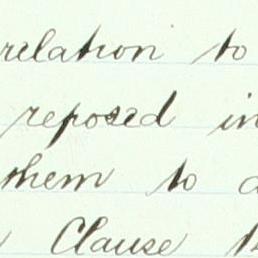 relation to
reposed in
them to
Clause